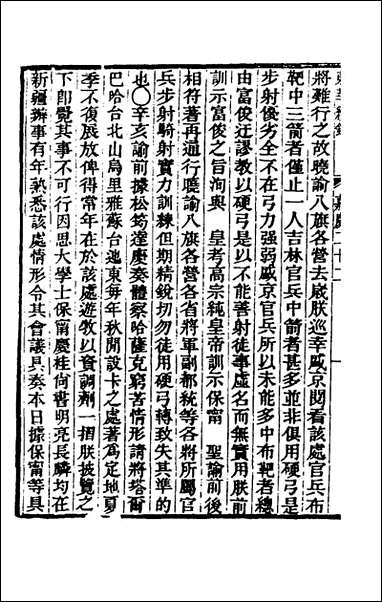 將難行之故曉諭八旗各營去歲朕巡幸盛京閱看該處官兵布
靶中三箭者僅止一人吉林官兵中箭者甚多並非俱用硬弓是
步射優劣全不在弓力强弱盛京官兵所以未能多中布靶者總
由富俊迂謬教以硬弓是以不能善射徒事虛名而無實用朕前
訓示富俊之旨洵與　皇考高宗純皇帝訓示保甯　聖諭前後
相符著再通行曉諭八旗各營各省將軍副都統等各將所屬官
兵步射騎射實力訓練但期精銳切勿徒用硬弓轉致失其準的
也○辛亥諭前據松筠達慶奏體察哈薩克窮苦情形請將塔爾
巴哈台北山烏里雅蘇台迤東每年秋間設卡之處著爲定地夏
季不復展放俾得常年在於該處遊牧以資調劑一摺朕披覽之
下卽覺其事不可行因思大學士保甯慶桂尙書明亮長麟均在
新疆辦事有年熟悉該處情形令其會議具奏本日據保甯等具